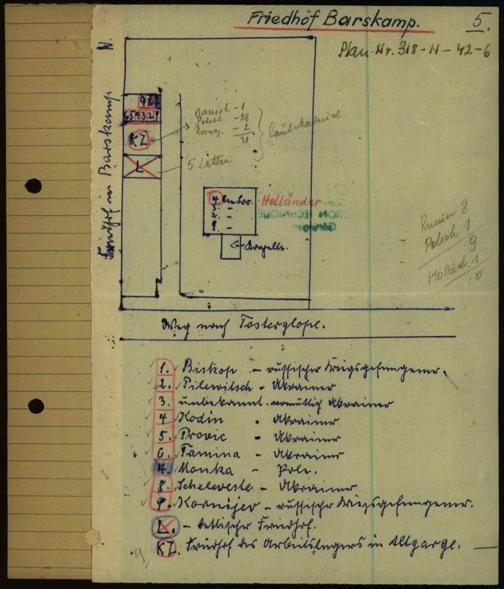 Friedhof Barskamp.
5.
Plan-Nr. 318-H-42-6
N.
Friedhof in Barskamp
KZ
L
Danish - 1
Polish - 28
Norweg. - 2
31
5 Letten
Holländer
Kapelle.
Russian 8
Polish 1
9
Holländ. 1
10
Weg nach Tosterglope.
1. Biskop - russischer Kriegsgefangener.
2. Pilewitsch - Ukrainer
3. unbekannt vermutlich Ukrainer
4 Kodin - Ukrainer
5. Provic - Ukrainer
6. Tamina - Ukrainer
7. Monka - Pole.
8. Scheleveste - Ukrainer
9. Kornijez - russischer Kriegsgefangener.
L. - lettischer Friedhof.
KZ. Friedhof des Arbeitslagers in Altgarge.